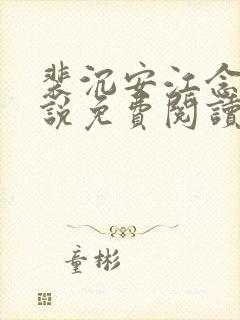 裴沉安江念
說免費閱讀
童彬